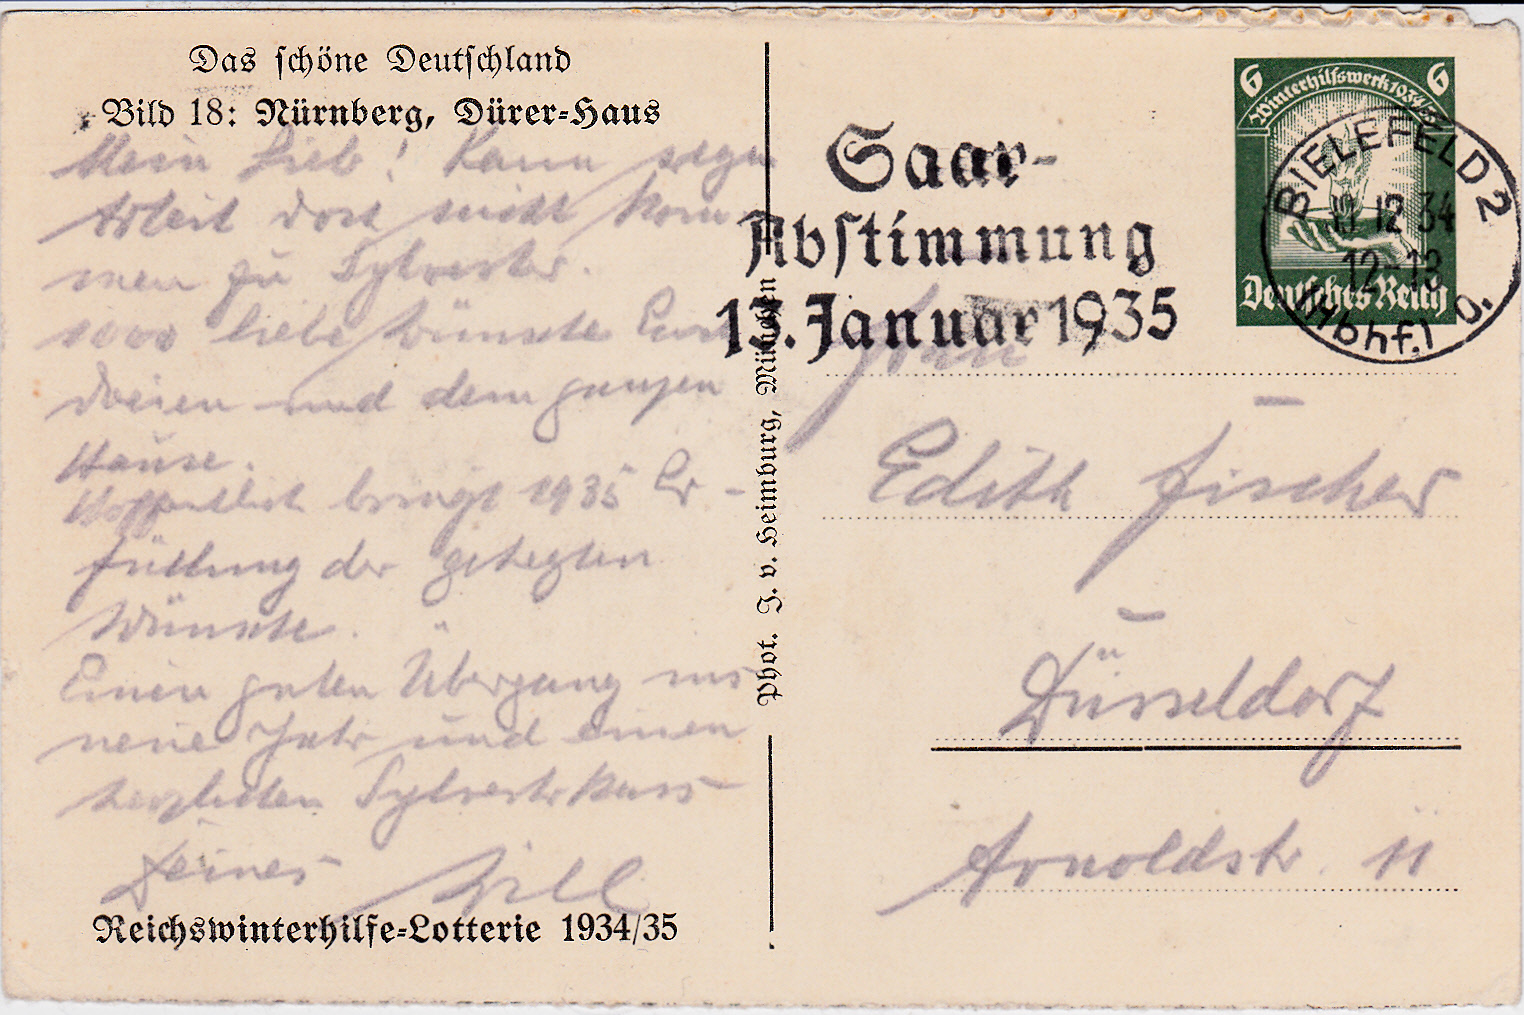 Das schöne Deutschland
Bild 18: Nürnberg, Dürer-Haus
Mein Lieb! Kann wegen
Arbeit dort nicht kom-
men zu Sylvester.
1000 liebe Wünsche Euch
Dreien und dem ganzen
Hause.
Hoffentlich bringt 1935 Er-
füllung der gehegten
Wünsche.
Einen guten Übergang ins
neue Jahr und einen
herzlichen Sylvesterkuss
Deines Will
Reichswinterhilfe-Lotterie 1934/35
Phot. J. v. Heimburg, München
Saar-
Abstimmung
13. Januar 1935
6 Winterhilfswerk 1934/35 6
Deutsches Reich
BIELEFELD 2
12 34
12-13
(Hbhf.)
Frau
Edith Fischer
Düsseldorf
Arnoldstr. 11